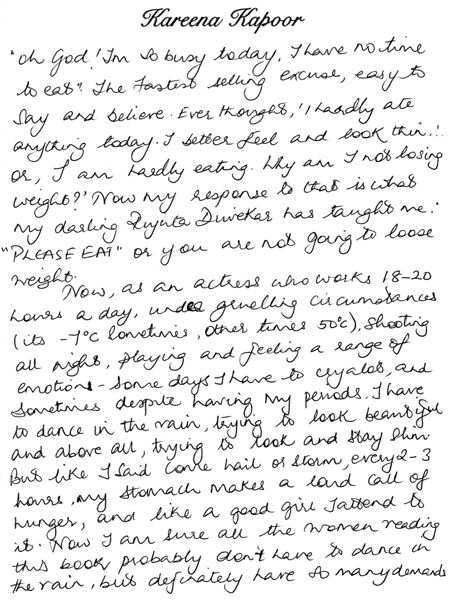 Kareena Kapoor
"Oh God! I'm so busy today, I have no time
to eat". The fastest selling excuse, easy to
say and believe. Ever thought, 'I hardly ate
anything today. I better feel and look thin..'
or, I am hardly eating. Why am I not losing
weight?' Now my response to that is what
my darling Rujuta Diwekar has taught me:
"PLEASE EAT" or you are not going to loose
weight.
Now, as an actress who works 18-20
hours a day, under gruelling circumstances
(its -7°C sometimes, other times 50°C), shooting
all night, playing and feeling a range of
emotions - some days I have to cry alot, and
sometimes despite having my periods. I have
to dance in the rain, trying to look beautiful
and above all, trying to look and stay slim
But like I said come hail or storm, every 2-3
hours, my stomach makes a loud call of
hunger, and like a good girl I attend to
it. Now I am sure all the women reading
this book probably don't have to dance in
the rain, but definately have so many demands